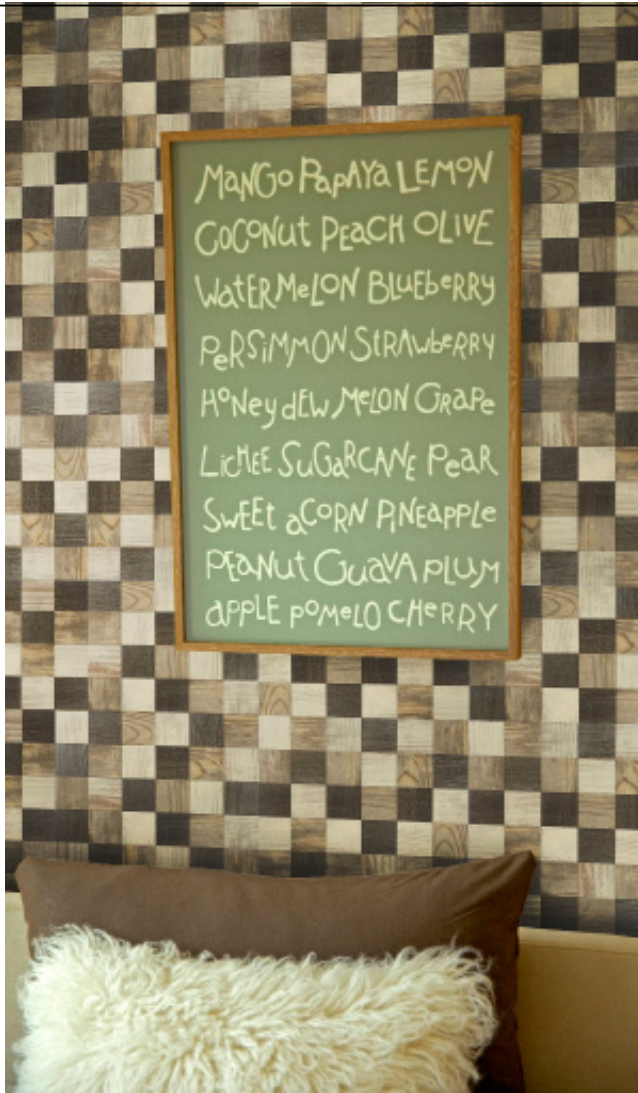 MaNGo PapAYa LEMON
COCONut PEACH OLIVE
WatERMeLON BLUEbeRRy
PeRSiMMON StRAwbeRRY
HONey dEW MeLON GRaPe
LicHEE SuGaRCANE PeaR
SwEEt aCORN PiNEapple
PEaNut GuaVA pLUM
aPPLE poMeLO CHeRRY